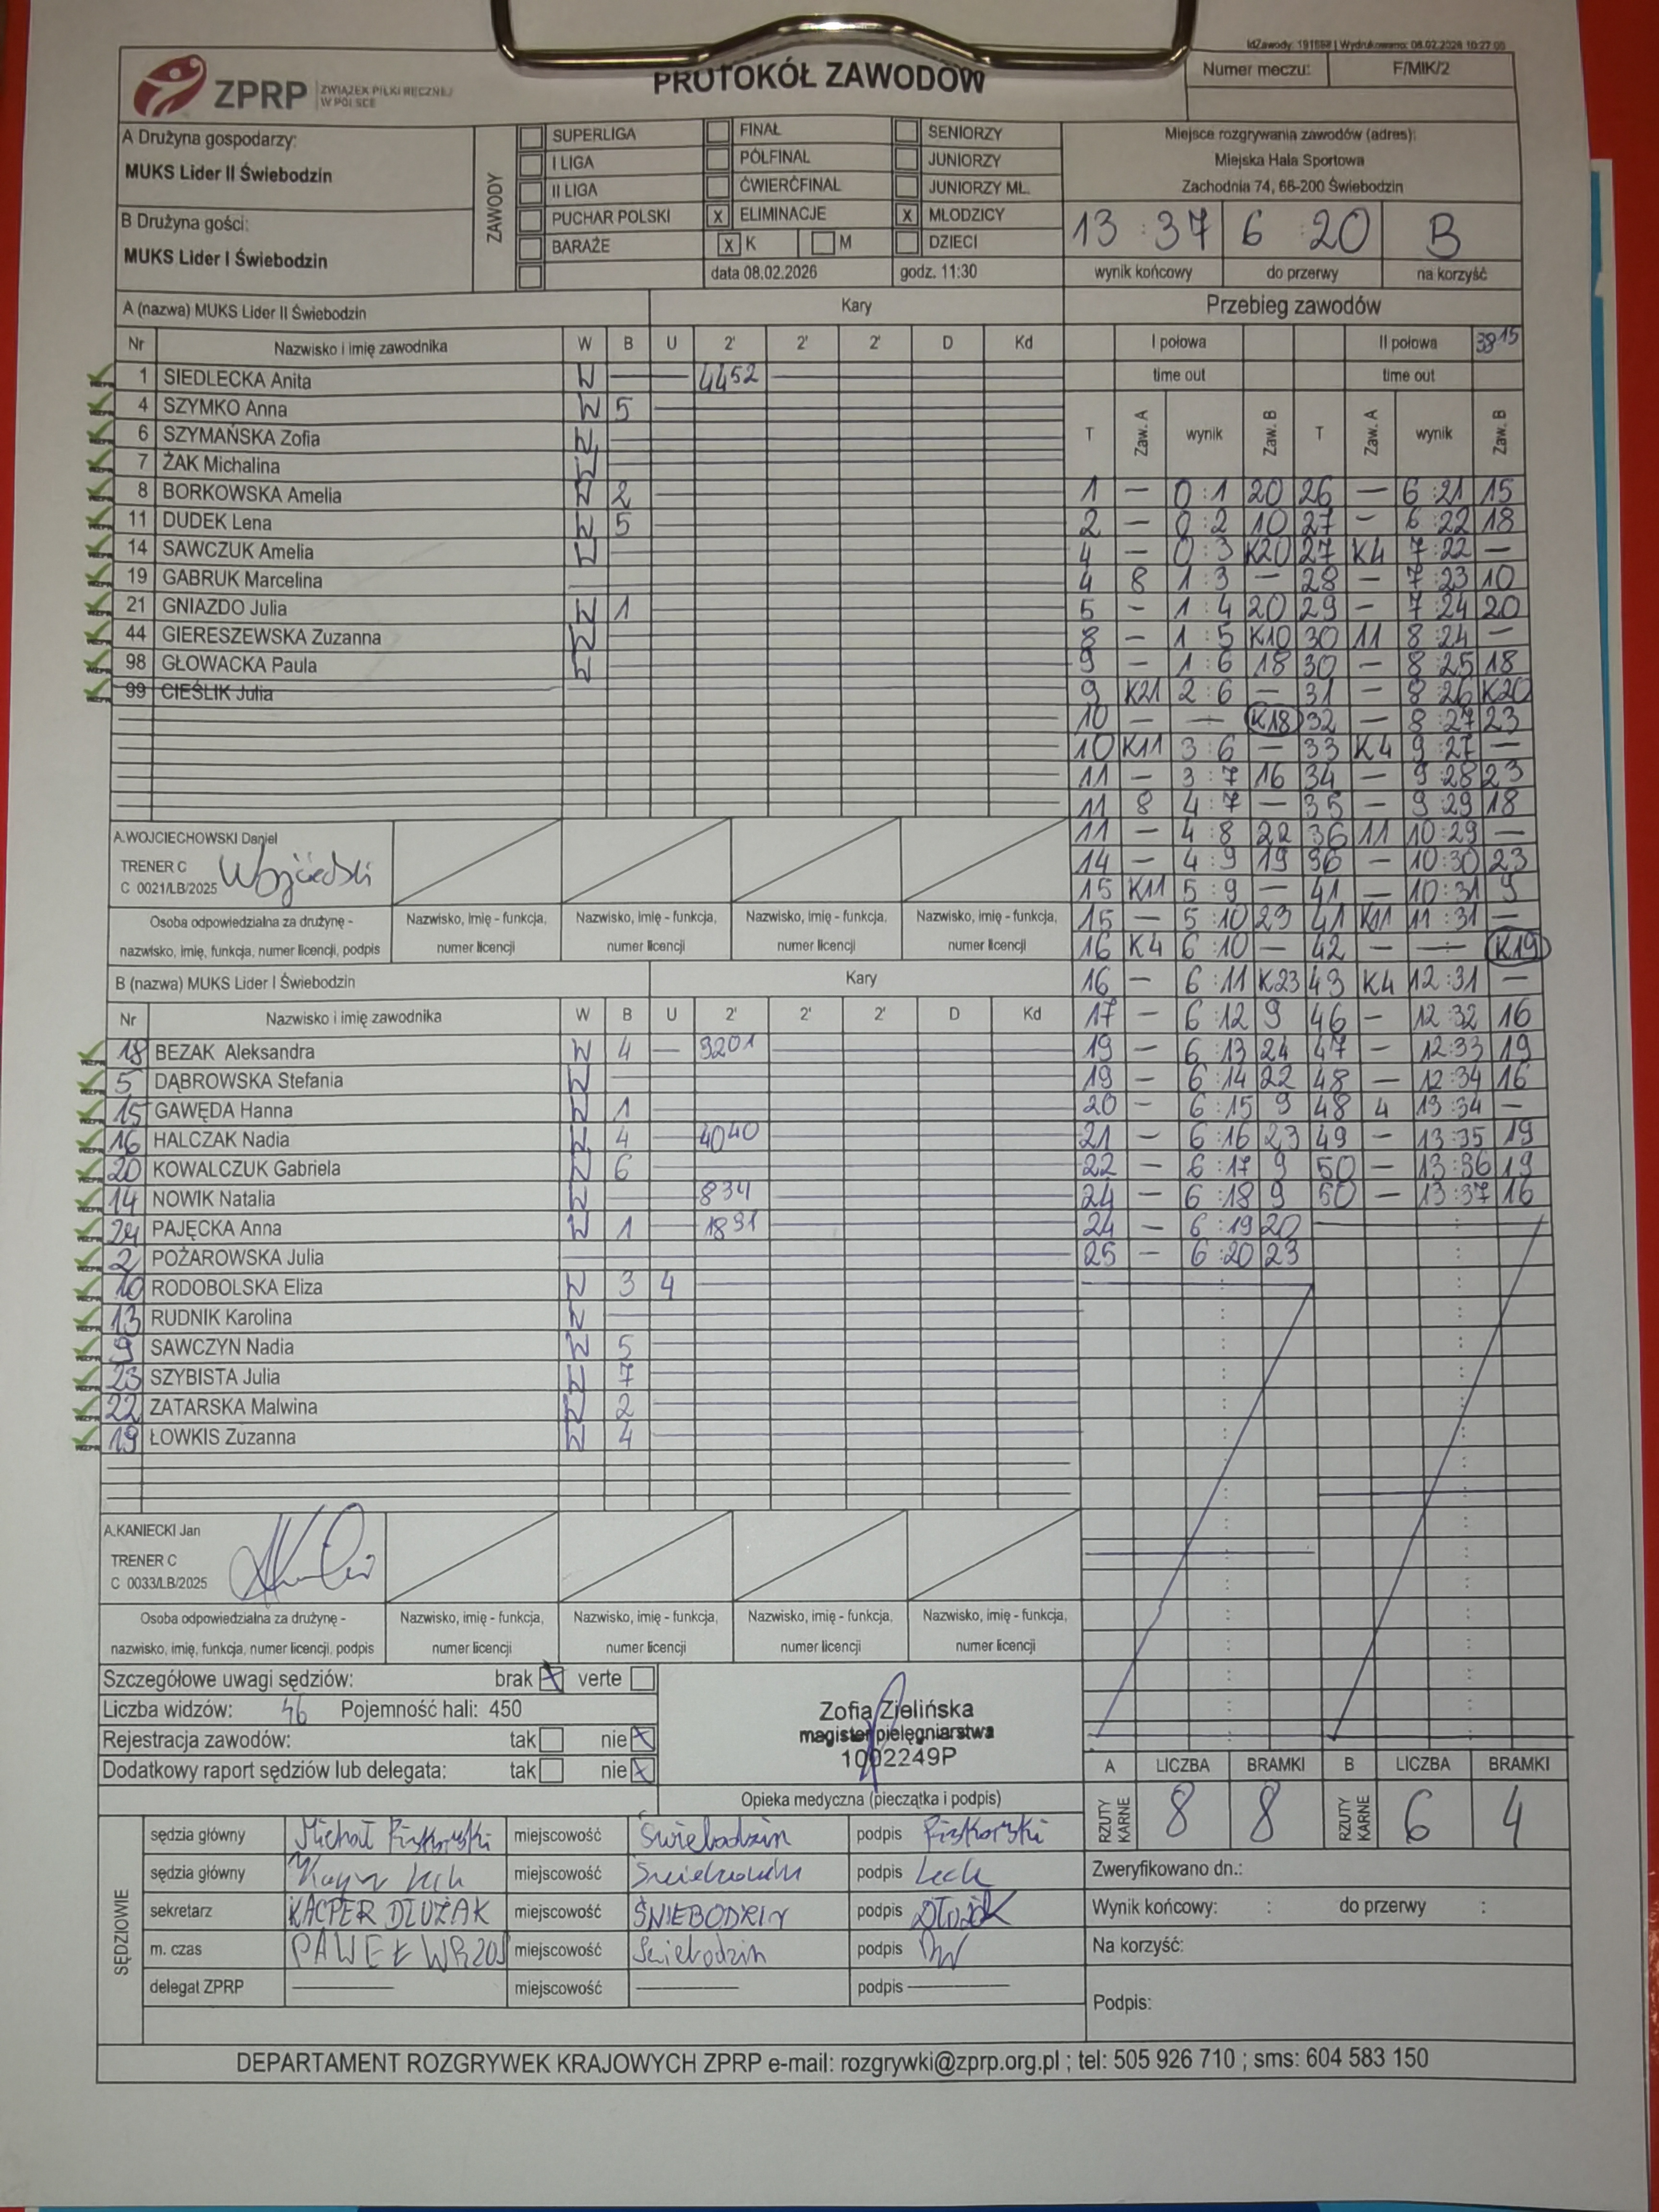 IdZawody: 191598 | Wydrukowano: 08.02.2026 10:27:00
ZPRP ZWIĄZEK PIŁKI RĘCZNEJ W POLSCE
PROTOKÓŁ ZAWODÓW
Numer meczu: F/MIK/2
A Drużyna gospodarzy:
MUKS Lider II Świebodzin
B Drużyna gości:
MUKS Lider I Świebodzin
ZAWODY
SUPERLIGA FINAŁ SENIORZY
I LIGA PÓŁFINAŁ JUNIORZY
II LIGA ĆWIERĆFINAŁ JUNIORZY MŁ.
PUCHAR POLSKI x ELIMINACJE x MŁODZICY
BARAŻE x K M DZIECI
data 08.02.2026 godz. 11:30
Miejsce rozgrywania zawodów (adres):
Miejska Hala Sportowa
Zachodnia 74, 66-200 Świebodzin
13 : 37 6 : 20 B
wynik końcowy do przerwy na korzyść
A (nazwa) MUKS Lider II Świebodzin Kary
Nr Nazwisko i imię zawodnika W B U 2' 2' 2' D Kd
1 SIEDLECKA Anita W — — 4452
4 SZYMKO Anna W 5
6 SZYMAŃSKA Zofia W
7 ŻAK Michalina W
8 BORKOWSKA Amelia W 2
11 DUDEK Lena W 5
14 SAWCZUK Amelia W
19 GABRUK Marcelina
21 GNIAZDO Julia W 1
44 GIERESZEWSKA Zuzanna W
98 GŁOWACKA Paula W
99 CIEŚLIK Julia
A.WOJCIECHOWSKI Daniel
TRENER C
C 0021/LB/2025
Osoba odpowiedzialna za drużynę - nazwisko, imię, funkcja, numer licencji, podpis
Nazwisko, imię - funkcja, numer licencji
Nazwisko, imię - funkcja, numer licencji
Nazwisko, imię - funkcja, numer licencji
Nazwisko, imię - funkcja, numer licencji
B (nazwa) MUKS Lider I Świebodzin Kary
Nr Nazwisko i imię zawodnika W B U 2' 2' 2' D Kd
18 BEZAK Aleksandra W 4 — 3201
5 DĄBROWSKA Stefania W
15 GAWĘDA Hanna W 1
16 HALCZAK Nadia W 4 4040
20 KOWALCZUK Gabriela W 6
14 NOWIK Natalia W 834
24 PAJĘCKA Anna W 1 1891
2 POŻAROWSKA Julia
10 RODOBOLSKA Eliza W 3 4
13 RUDNIK Karolina W
9 SAWCZYN Nadia W 5
23 SZYBISTA Julia W 7
22 ZATARSKA Malwina W 2
19 ŁOWKIS Zuzanna W 4
A.KANIECKI Jan
TRENER C
C 0033/LB/2025
Osoba odpowiedzialna za drużynę - nazwisko, imię, funkcja, numer licencji, podpis
Nazwisko, imię - funkcja, numer licencji
Nazwisko, imię - funkcja, numer licencji
Nazwisko, imię - funkcja, numer licencji
Nazwisko, imię - funkcja, numer licencji
Przebieg zawodów
I połowa II połowa 3815
time out time out
T Zaw. A wynik Zaw. B T Zaw. A wynik Zaw. B
1 — 0:1 20 26 — 6:21 15
2 — 0:2 10 27 — 6:22 18
4 — 0:3 K20 27 K4 7:22 —
4 8 1:3 — 28 — 7:23 10
5 - 1:4 20 29 - 7:24 20
8 — 1:5 K10 30 11 8:24 —
9 — 1:6 18 30 — 8:25 18
9 K21 2:6 — 31 — 8:26 K20
10 — — K18 32 — 8:27 23
10 K11 3:6 — 33 K4 9:27 —
11 — 3:7 16 34 — 9:28 23
11 8 4:7 — 35 — 9:29 18
11 — 4:8 22 36 11 10:29 —
14 — 4:9 19 36 — 10:30 23
15 K11 5:9 — 41 — 10:31 9
15 — 5:10 23 41 K11 11:31 —
16 K4 6:10 — 42 — — K19
16 — 6:11 K23 43 K4 12:31 —
17 — 6:12 9 46 — 12:32 16
19 — 6:13 24 47 — 12:33 19
19 — 6:14 22 48 — 12:34 16
20 — 6:15 9 48 4 13:34 —
21 — 6:16 23 49 — 13:35 19
22 — 6:17 9 50 — 13:36 19
24 — 6:18 9 50 — 13:37 16
24 — 6:19 20
25 — 6:20 23
Szczegółowe uwagi sędziów: brak x verte
Liczba widzów: 46 Pojemność hali: 450
Rejestracja zawodów: tak nie x
Dodatkowy raport sędziów lub delegata: tak nie x
Zofia Zielińska
magister pielęgniarstwa
1002249P
Opieka medyczna (pieczątka i podpis)
A LICZBA BRAMKI B LICZBA BRAMKI
RZUTY KARNE 8 8 RZUTY KARNE 6 4
SĘDZIOWIE
sędzia główny Michał Piskorski miejscowość Świebodzin podpis Piskorski
sędzia główny Lech miejscowość Świebodzin podpis Lech
sekretarz KACPER DŁUŻAK miejscowość ŚWIEBODZIN podpis Dłużak
m. czas PAWEŁ WRZOS miejscowość Świebodzin podpis PW
delegat ZPRP — miejscowość — podpis —
Zweryfikowano dn.:
Wynik końcowy: : do przerwy :
Na korzyść:
Podpis:
DEPARTAMENT ROZGRYWEK KRAJOWYCH ZPRP e-mail: rozgrywki@zprp.org.pl ; tel: 505 926 710 ; sms: 604 583 150